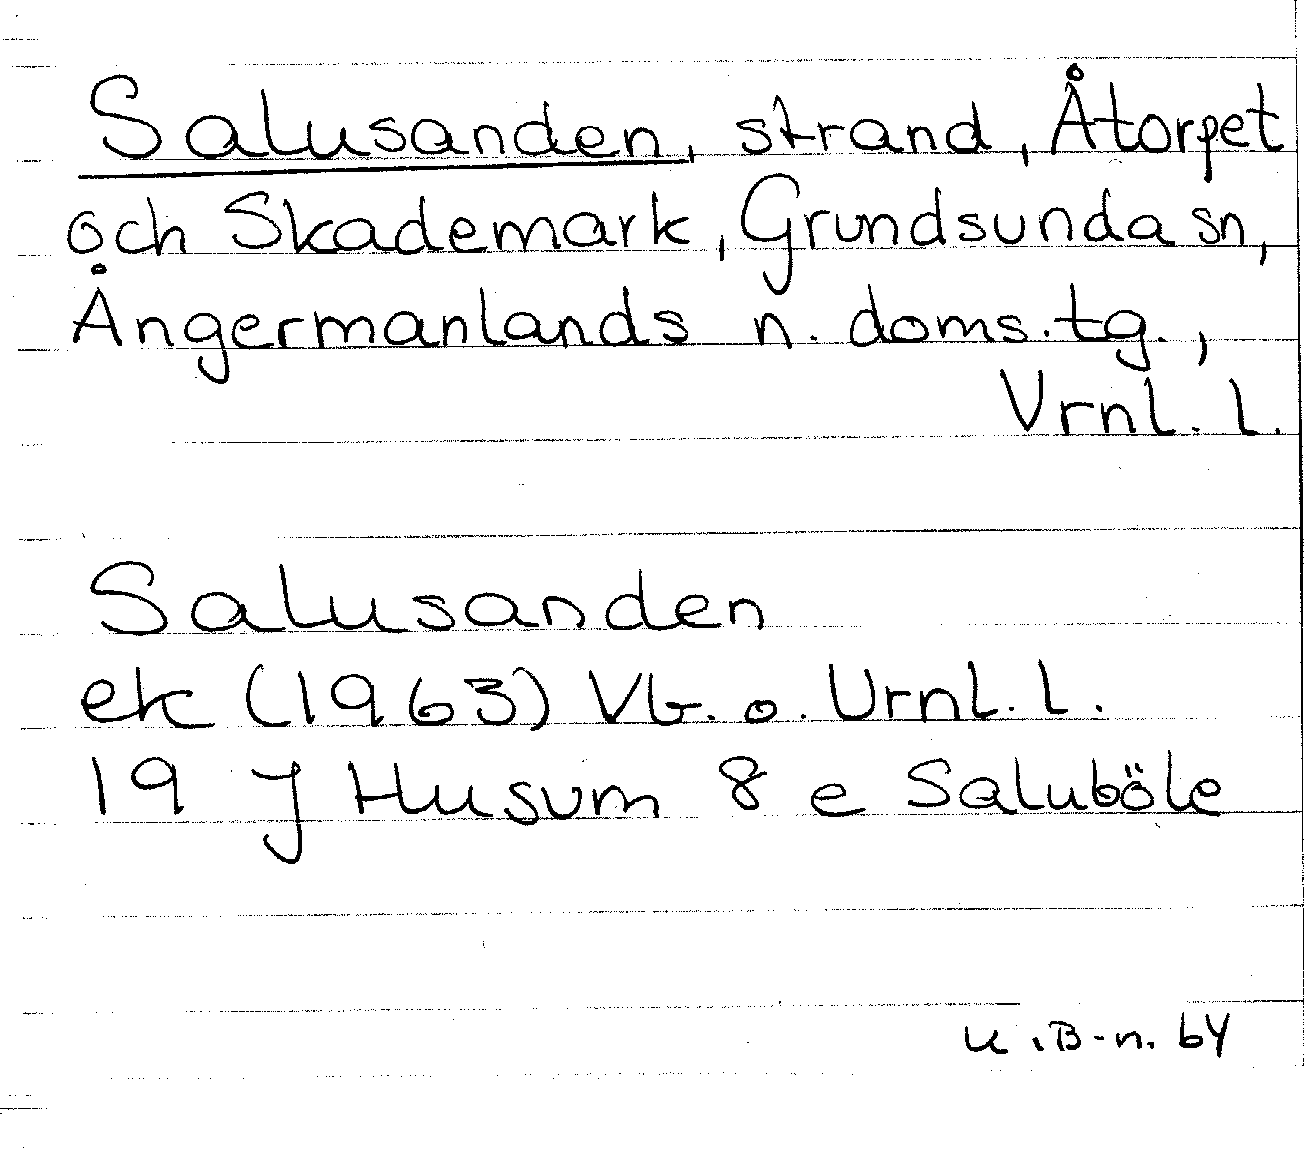 Salusanden, strand, Åtorpet
och Skademark, Grundsunda sn,
Ångermanlands n. doms.tg.,
Vrnl. l.
Salusanden
ek (1963) Vb. o. Vrnl. l.
19 J Husum 8 e Saluböle
K.B-n. 64